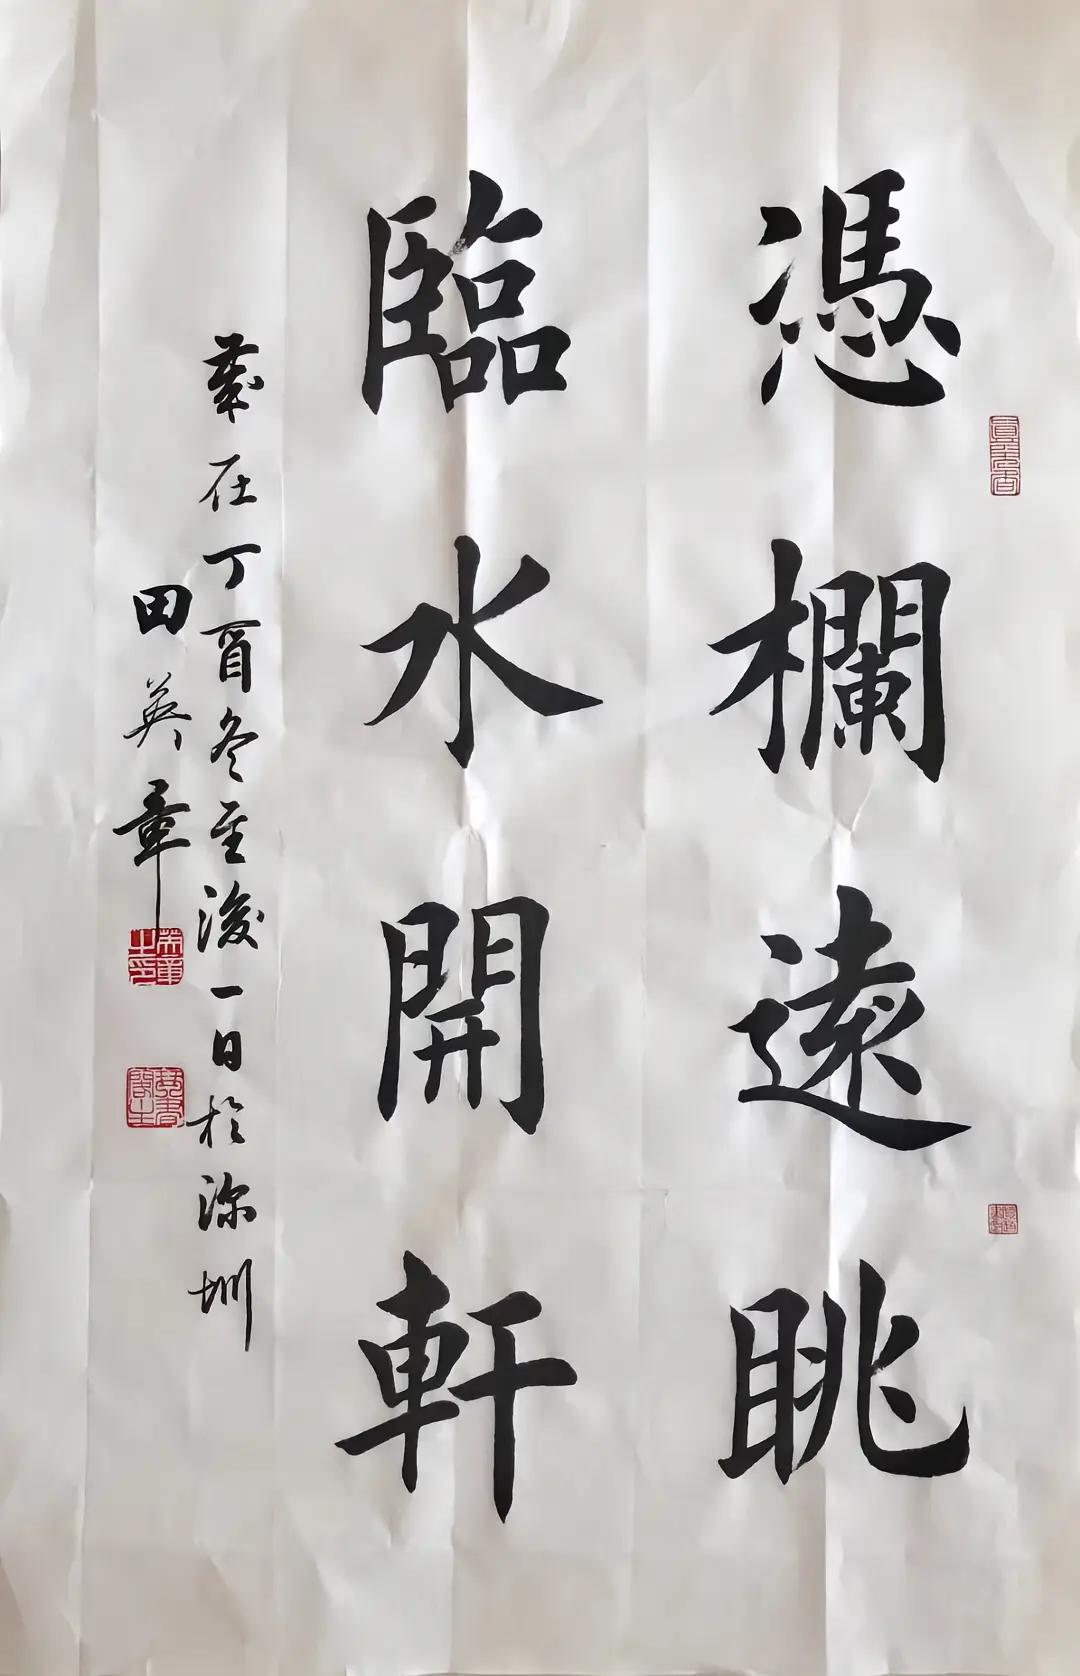 憑欄遠眺
臨水開軒
歲在丁酉冬至後一日於深圳
田英章